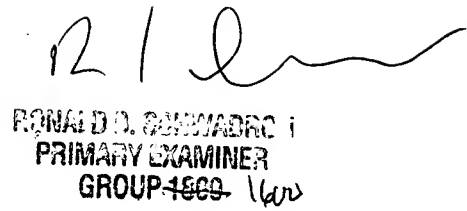 RONALD B. SCHWADRON
PRIMARY EXAMINER
GROUP 1800 1600